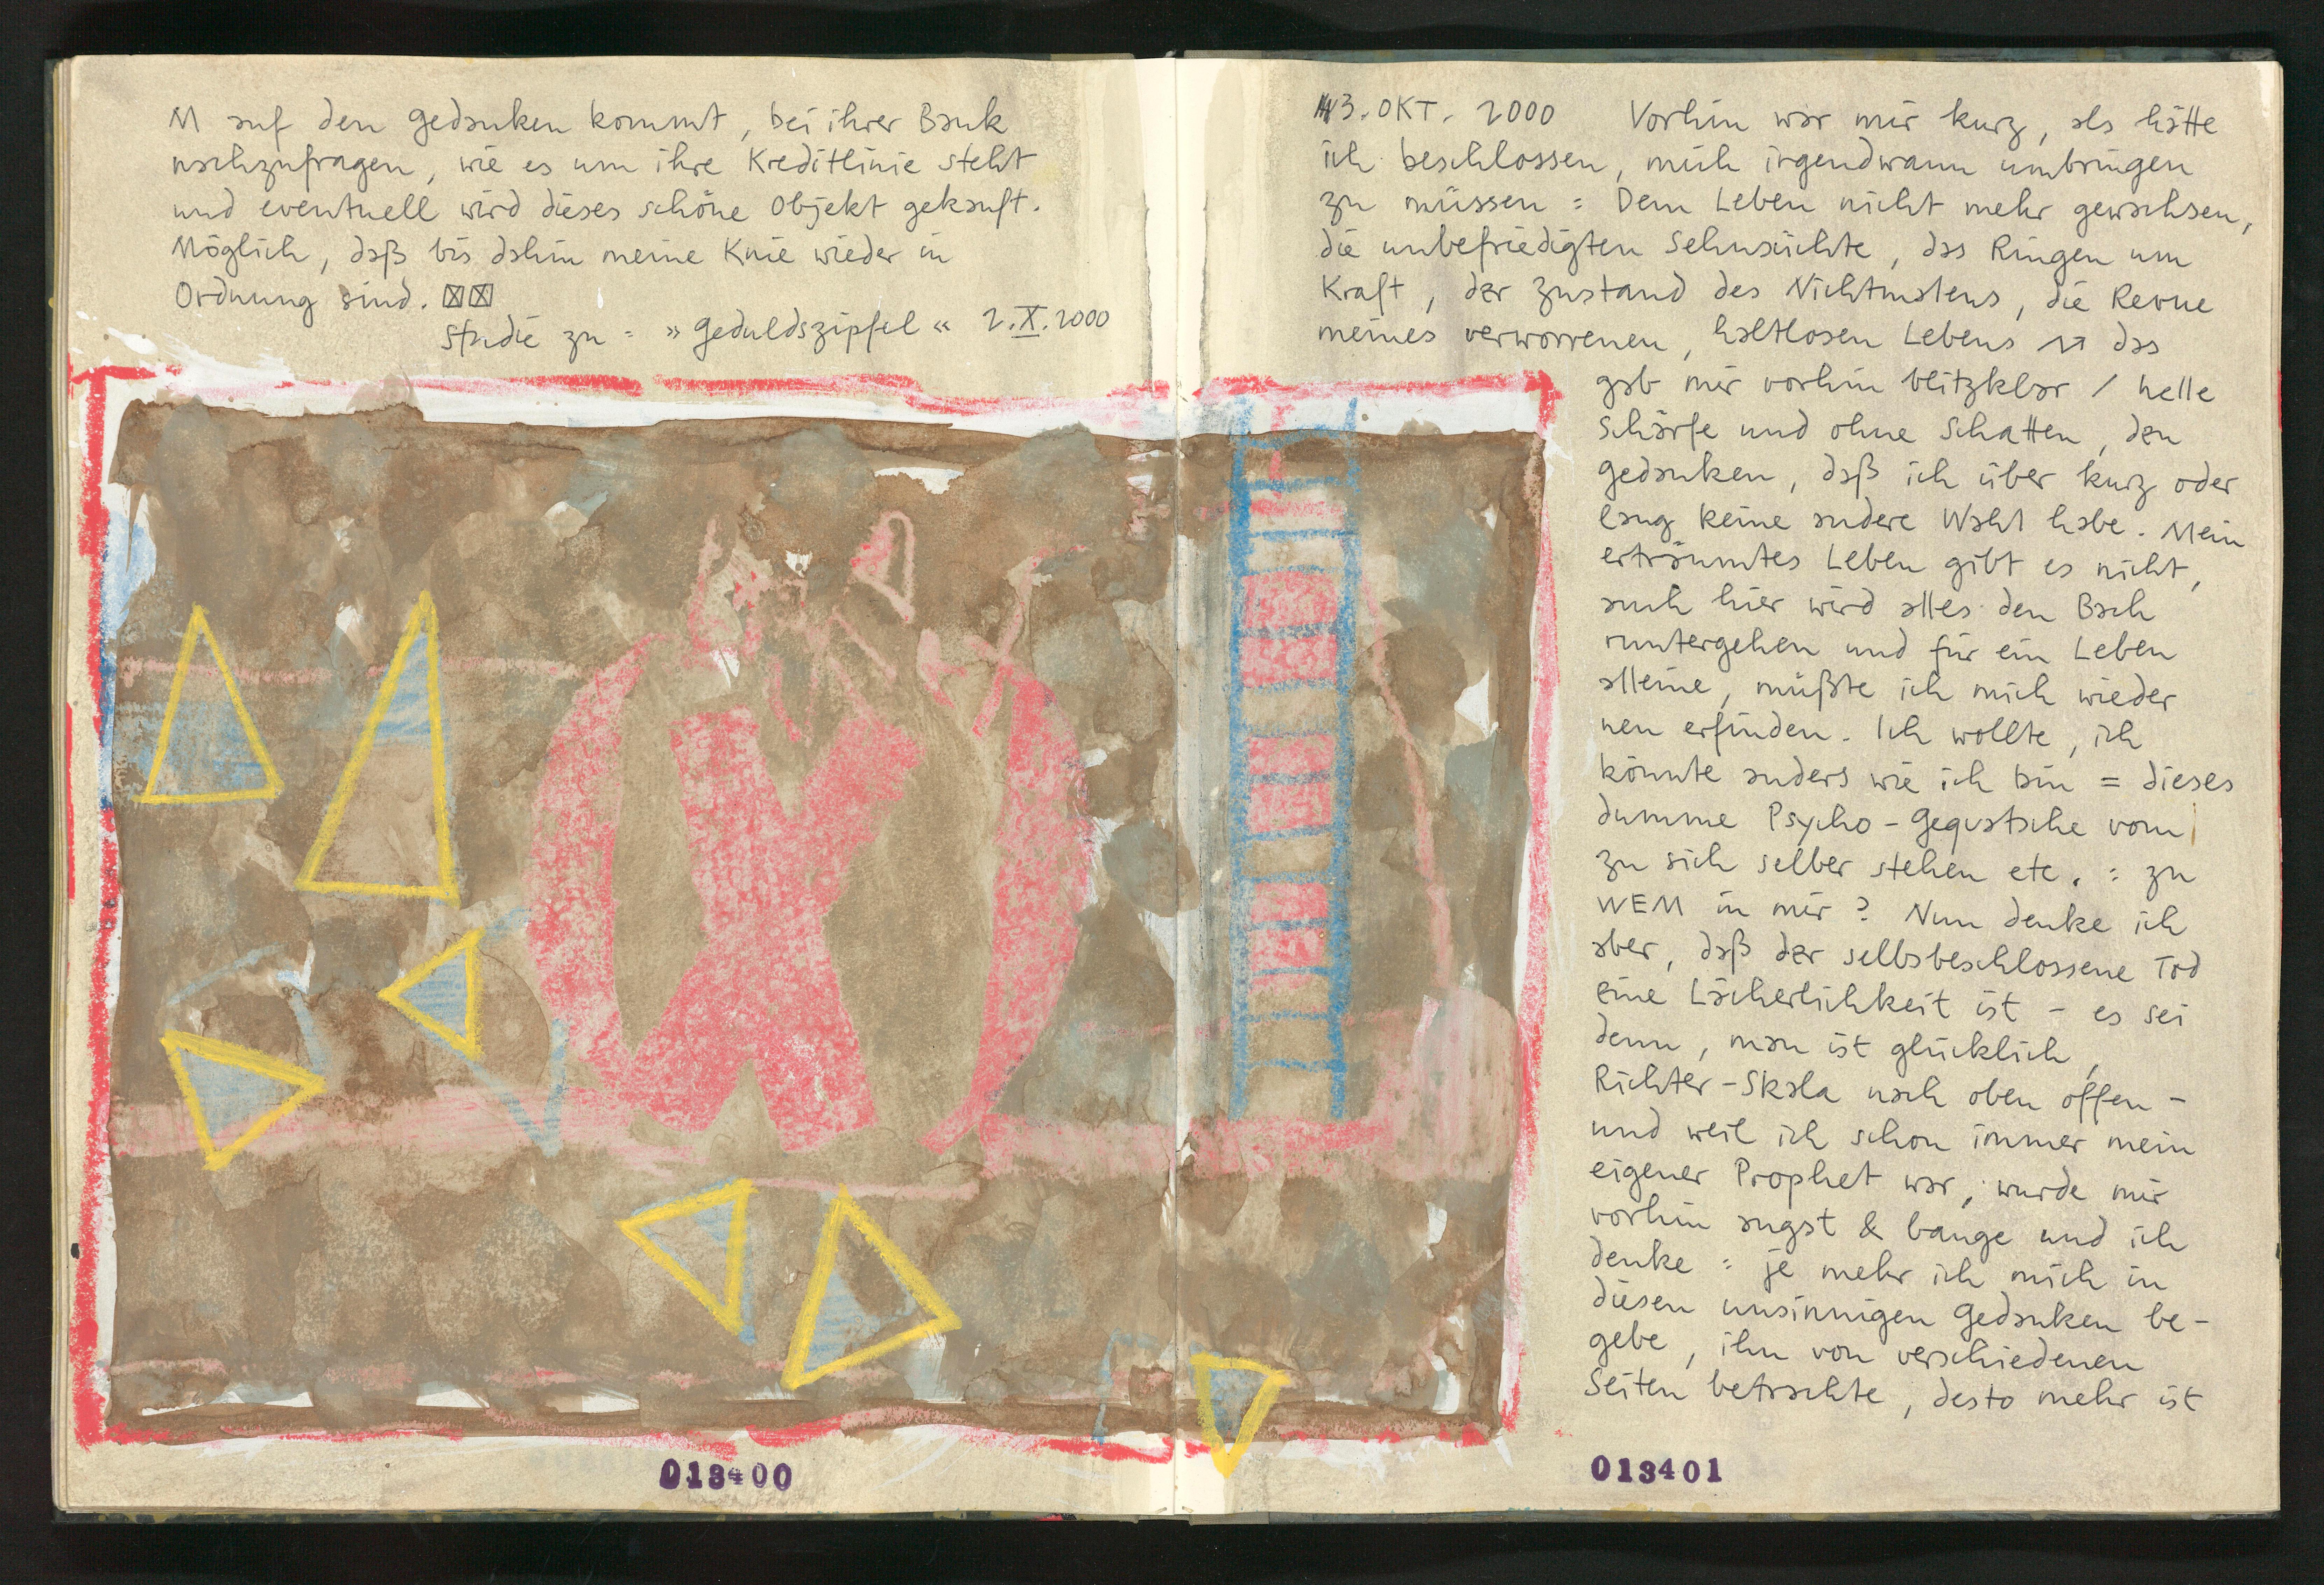 M auf den Gedanken kommt, bei ihrer Bank
nachzufragen, wie es um ihre Kreditlinie steht
und eventuell wird dieses schöne Objekt gekauft.
Möglich, daß bis dahin meine Knie wieder in
Ordnung sind. ☒☒
Studie zu: »Geduldszipfel« 2.X.2000
013400
3. OKT. 2000 Vorhin war mir kurz, als hätte
ich beschlossen, mich irgendwann umbringen
zu müssen: Dem Leben nicht mehr gewachsen,
die unbefriedigten Sehnsüchte, das Ringen um
Kraft, der Zustand des Nichtmalens, die Revue
meines verworrenen, haltlosen Lebens das
gab mir vorhin blitzklar / helle
Schärfe und ohne Schatten, den
Gedanken, daß ich über kurz oder
lang keine andere Wahl habe. Mein
erträumtes Leben gibt es nicht,
auch hier wird alles den Bach
runtergehen und für ein Leben
alleine, müßte ich mich wieder
neu erfinden. Ich wollte, ich
könnte anders wie ich bin = dieses
dumme Psycho-Gequatsche vom
zu sich selber stehen etc. : zu
WEM in mir? Nun denke ich
aber, daß der selbsbeschlossene Tod
eine Lächerlichkeit ist - es sei
denn, man ist glücklich,
Richter-Skala nach oben offen -
und weil ich schon immer mein
eigener Prophet war, wurde mir
vorhin angst & bange und ich
denke: je mehr ich mich in
diesen unsinnigen Gedanken be-
gebe, ihn von verschiedenen
Seiten betrachte, desto mehr ist
013401